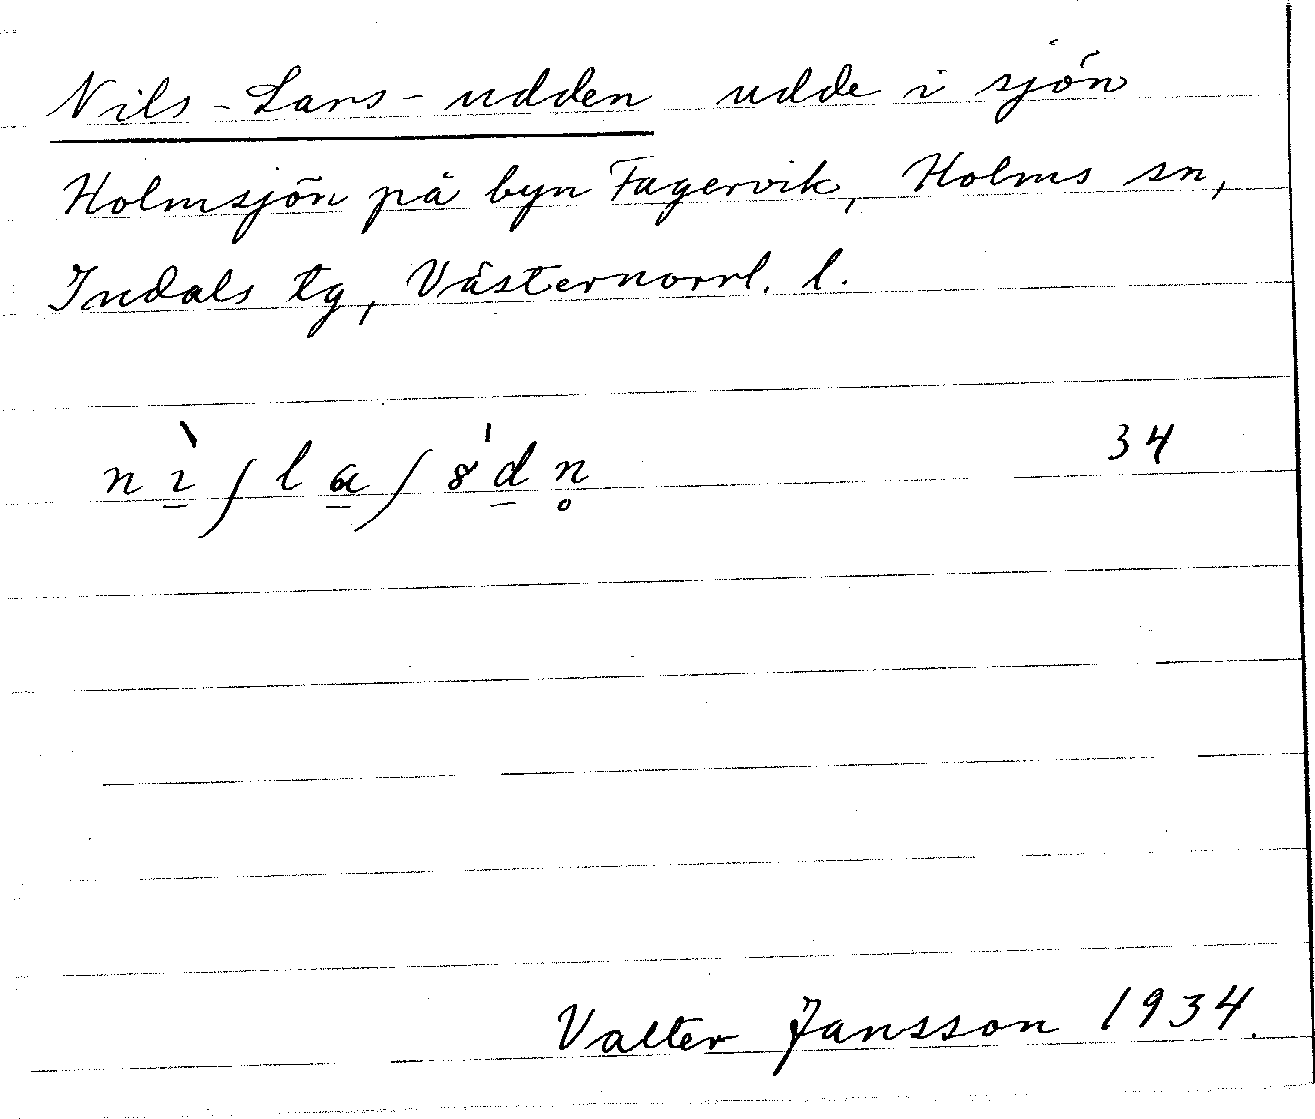 Nils-Lars-udden udde i sjön
Holmsjön på byn Fagervik, Holms sn,
Indals tg, Västernorrl. l.
34
Valter Jansson 1934.